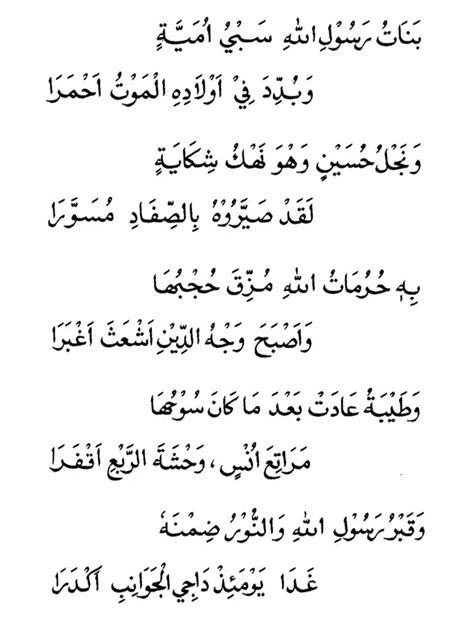 بَنَاتُ رَسُوْلِ اللهِ سَبْيُ اُمَيَّةٍ
وَبُدِّدَ فِيْ اَوْلَادِهِ الْمَوْتُ اَحْمَرَا
وَنَجْلُ حُسَيْنٍ وَهْوَ نَهْكُ شِكَايَةٍ
لَقَدْ صَيَّرُوْهُ بِالصِّفَادِ مُسَوَّرَا
بِهٖ حُرُمَاتُ اللهِ مُزِّقَ حُجْبُهَا
وَاَصْبَحَ وَجْهُ الدِّيْنِ اَشْعَثَ اَغْبَرَا
وَطَيْبَةُ عَادَتْ بَعْدَ مَا كَانَ سُوْحُهَا
مَرَاتِعَ اُنْسٍ، وَحْشَةَ الرَّبْعِ اَقْفَرَا
وَقَبْرُ رَسُوْلِ اللهِ وَالنُّوْرُ ضِمْنَهٗ
غَدَا يَوْمَئِذْ دَاجِي الْجَوَانِبِ اَكْدَرَا